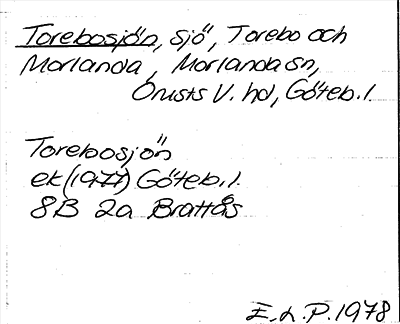 Torebosjön, sjö, Torebo och
Morlanda, Morlanda sn,
Orusts V. hd, Göteb. l.
Torebosjön
ek (1977) Göteb. l.
8B 2a Brattås
E. L. P. 1978